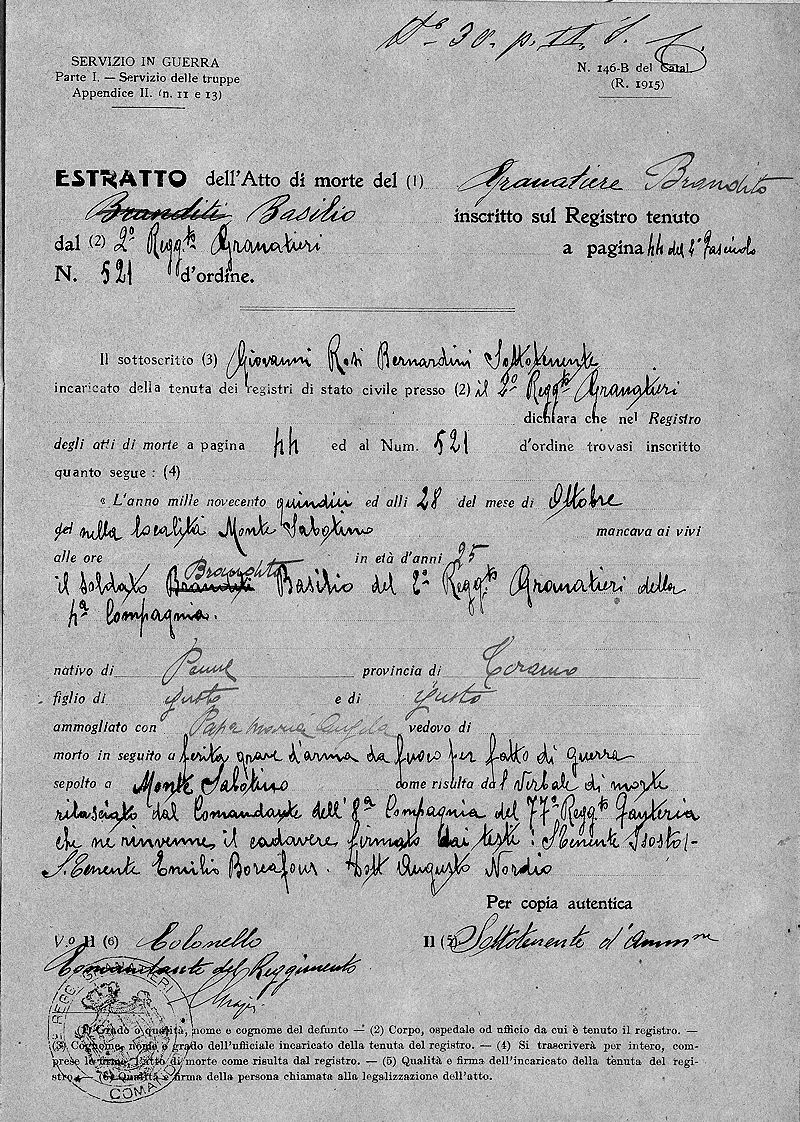 No 30. p. II. S. C.
SERVIZIO IN GUERRA
Parte I. — Servizio delle truppe
Appendice II. (n. 11 e 13)
N. 146-B del Catal.
(R. 1915)
ESTRATTO dell'Atto di morte del (1) Granatiere Brandito
Branditi Basilio inscritto sul Registro tenuto
dal (2) 2º Regg.to Granatieri a pagina 44 del 4º Fascicolo
N. 521 d'ordine.
Il sottoscritto (3) Giovanni Rosi Bernardini Sottotenente
incaricato della tenuta dei registri di stato civile presso (2) il 2º Regg.to Granatieri
dichiara che nel Registro
degli atti di morte a pagina 44 ed al Num. 521 d'ordine trovasi inscritto
quanto segue : (4)
« L'anno mille novecento quindici ed alli 28 del mese di Ottobre
nella località Monte Sabotino mancava ai vivi
alle ore in età d'anni 25
Brandito
il soldato Branditi Basilio del 2º Regg.to Granatieri della
4ª Compagnia.
nativo di Penne provincia di Teramo
figlio di Giusto e di Giusto
ammogliato con Papa Maria Angela vedovo di
morto in seguito a ferita grave d'arma da fuoco per fatto di guerra
sepolto a Monte Sabotino come risulta dal Verbale di morte
rilasciato dal Comandante dell'8ª Compagnia del 77º Regg.to Fanteria
che ne rinvenne il cadavere firmato dai testi : S.Tenente
S.Tenente Emilio . Dott Augusto Nordio
Per copia autentica
V.o Il (6) Colonello Il (5) Sottotenente d'Amm.ne
Comandante del Reggimento
2º REGG. GRANATIERI
COMANDO
(1) Grado o qualità, nome e cognome del defunto — (2) Corpo, ospedale od ufficio da cui è tenuto il registro. —
(3) Cognome, nome e grado dell'ufficiale incaricato della tenuta del registro. — (4) Si trascriverà per intero, com-
prese le firme, l'atto di morte come risulta dal registro. — (5) Qualità e firma dell'incaricato della tenuta del regi-
stro. — (6) Qualità e firma della persona chiamata alla legalizzazione dell'atto.